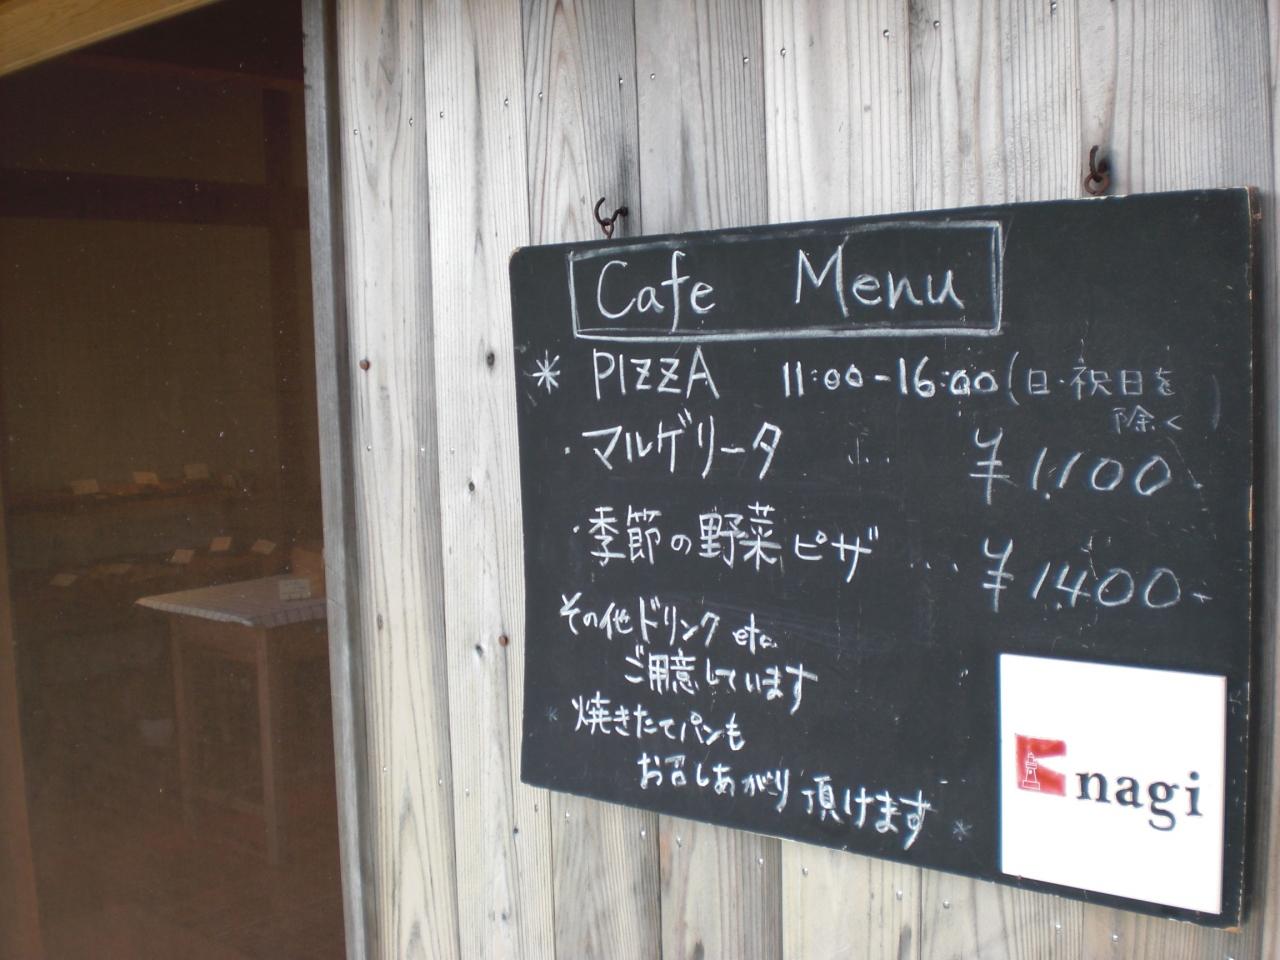 Cafe Menu
* PIZZA 11:00-16:00(日・祝日を除く)
・マルゲリータ ... ¥1,100
・季節の野菜ピザ ... ¥1,400-
その他ドリンク etc.
ご用意しています
* 焼きたてパンも
お召しあがり頂けます *
nagi